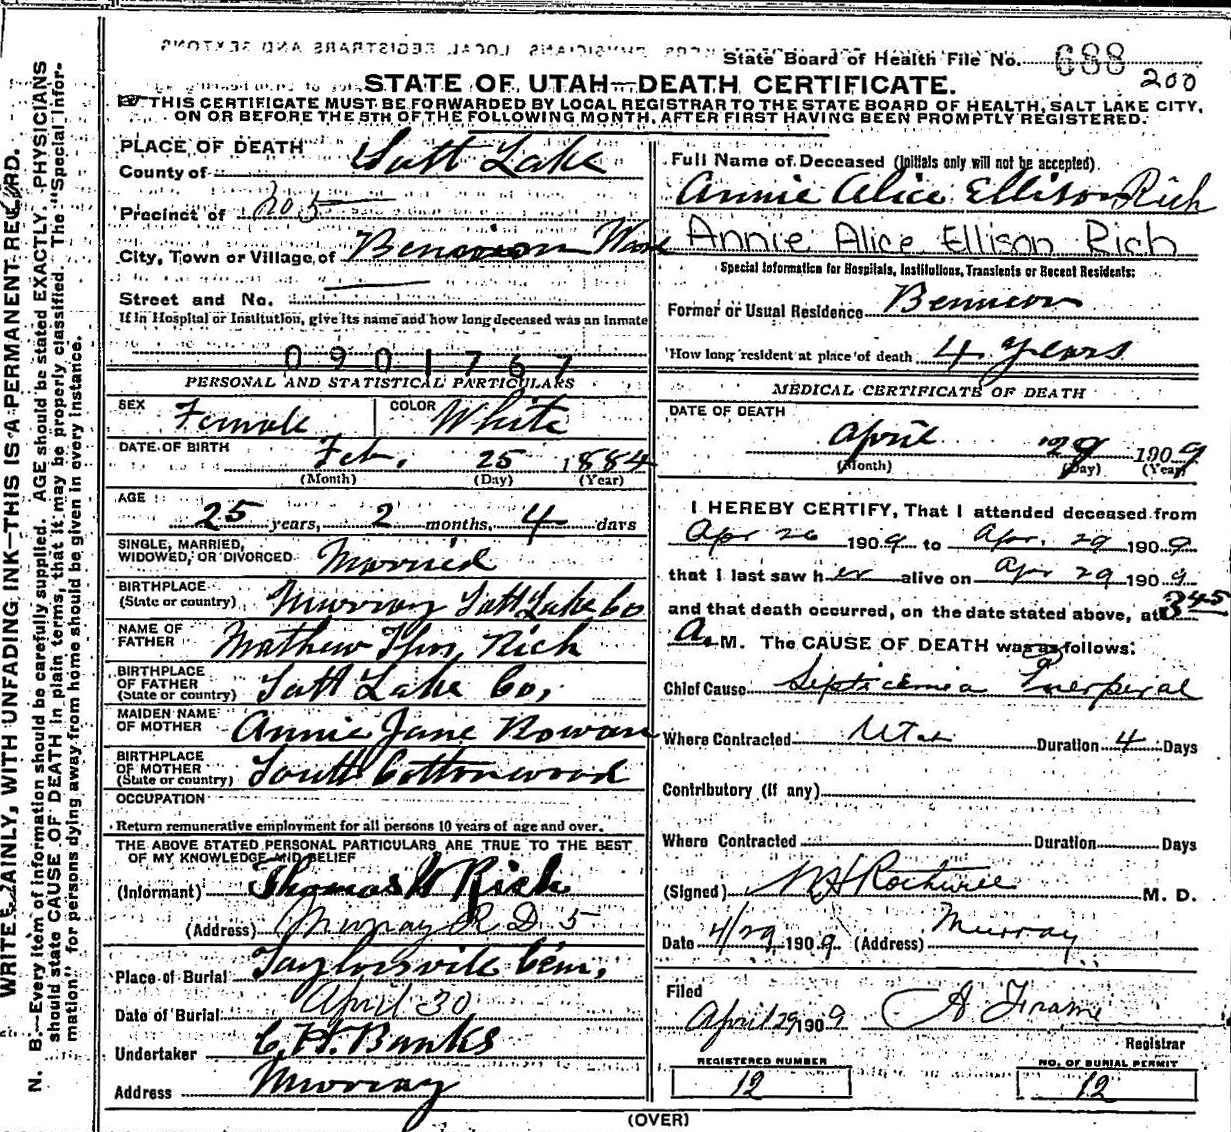 State Board of Health File No. 688
200
STATE OF UTAH—DEATH CERTIFICATE.
THIS CERTIFICATE MUST BE FORWARDED BY LOCAL REGISTRAR TO THE STATE BOARD OF HEALTH, SALT LAKE CITY,
ON OR BEFORE THE 5TH OF THE FOLLOWING MONTH, AFTER FIRST HAVING BEEN PROMPTLY REGISTERED.
WRITE PLAINLY, WITH UNFADING INK—THIS IS A PERMANENT RECORD.
N. B.—Every item of information should be carefully supplied. AGE should be stated EXACTLY. PHYSICIANS
should state CAUSE OF DEATH in plain terms, that it may be properly classified. The "Special Infor-
mation" for persons dying away from home should be given in every instance.
PLACE OF DEATH
County of Salt Lake
Precinct of 205
City, Town or Village of Bennion Ward
Street and No.
If in Hospital or Institution, give its name and how long deceased was an Inmate
0901767
PERSONAL AND STATISTICAL PARTICULARS
SEX Female COLOR White
DATE OF BIRTH Feb. 25 1884
(Month) (Day) (Year)
AGE 25 years, 2 months, 4 days
SINGLE, MARRIED,
WIDOWED, OR DIVORCED Married
BIRTHPLACE
(State or country) Murray Salt Lake Co
NAME OF
FATHER Mathew Thos, Rich
BIRTHPLACE
OF FATHER
(State or country) Salt Lake Co,
MAIDEN NAME
OF MOTHER Annie Jane Rowan
BIRTHPLACE
OF MOTHER
(State or country) South Cottonwood
OCCUPATION
Return remunerative employment for all persons 10 years of age and over.
THE ABOVE STATED PERSONAL PARTICULARS ARE TRUE TO THE BEST
OF MY KNOWLEDGE AND BELIEF
(Informant) Thomas W Rich
(Address) Murray R D 5
Place of Burial Taylorsville Cem,
Date of Burial April 30
Undertaker C. H. Banks
Address Murray
Full Name of Deceased (Initials only will not be accepted)
Annie Alice Ellison Rich
Annie Alice Ellison Rich
Special Information for Hospitals, Institutions, Transients or Recent Residents:
Former or Usual Residence Bennion
How long resident at place of death 4 years
MEDICAL CERTIFICATE OF DEATH
DATE OF DEATH
April 29 1909
(Month) (Day) (Year)
I HEREBY CERTIFY, That I attended deceased from
Apr 26 1909 to Apr. 29 1909
that I last saw her alive on Apr 29 1909
and that death occurred, on the date stated above, at 345
A. M. The CAUSE OF DEATH was as follows:
Chief Cause Septicemia Puerperal
Where Contracted Utah Duration 4 Days
Contributory (if any)
Where Contracted Duration Days
(Signed) M. D.
Date 4/29 1909 (Address) Murray
Filed
April 29 1909 A Frame
Registrar
REGISTERED NUMBER
12
NO. OF BURIAL PERMIT
12
(OVER)